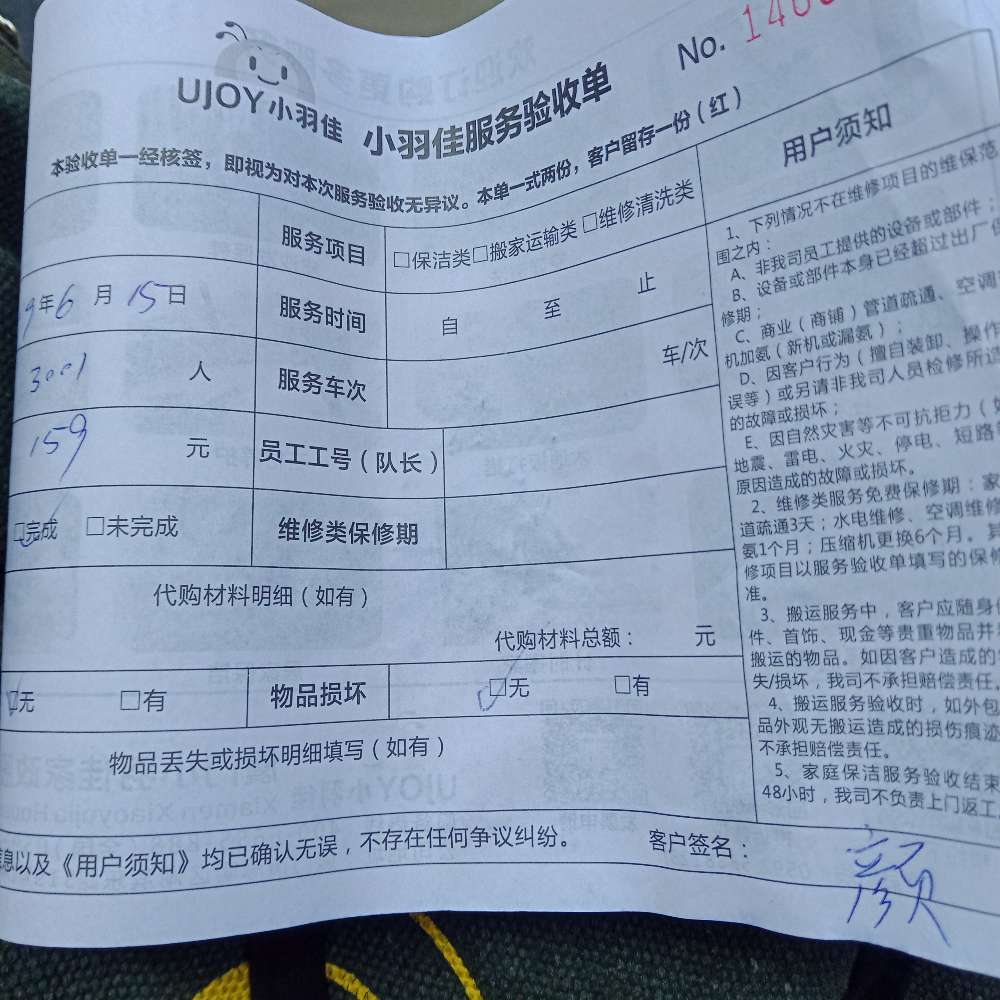 No. 1400
UJOY小羽佳 小羽佳服务验收单
本验收单一经核签，即视为对本次服务验收无异议。本单一式两份，客户留存一份（红）
服务项目 □保洁类□搬家运输类□维修清洗类
9年6月15日 服务时间 自 至 止
3001 人 服务车次 车/次
159 元 员工工号（队长）
□完成 □未完成 维修类保修期
代购材料明细（如有）
代购材料总额： 元
□无 □有 物品损坏 □无 □有
物品丢失或损坏明细填写（如有）
息以及《用户须知》均已确认无误，不存在任何争议纠纷。 客户签名： 颜
用户须知
1、下列情况不在维修项目的维保范
围之内：
A、非我司员工提供的设备或部件；
B、设备或部件本身已经超过出厂
修期；
C、商业（商铺）管道疏通、空调
机加氨（新机或漏氨）；
D、因客户行为（擅自装卸、操作
误等）或另请非我司人员检修所造
的故障或损坏；
E、因自然灾害等不可抗拒力（如
地震、雷电、火灾、停电、短路等
原因造成的故障或损坏。
2、维修类服务免费保修期：家
道疏通3天；水电维修、空调维修
氨1个月；压缩机更换6个月。其
修项目以服务验收单填写的保修
准。
3、搬运服务中，客户应随身
件、首饰、现金等贵重物品并
搬运的物品。如因客户造成的
失/损坏，我司不承担赔偿责任。
4、搬运服务验收时，如外包
品外观无搬运造成的损伤痕迹
不承担赔偿责任。
5、家庭保洁服务验收结束
48小时，我司不负责上门返工